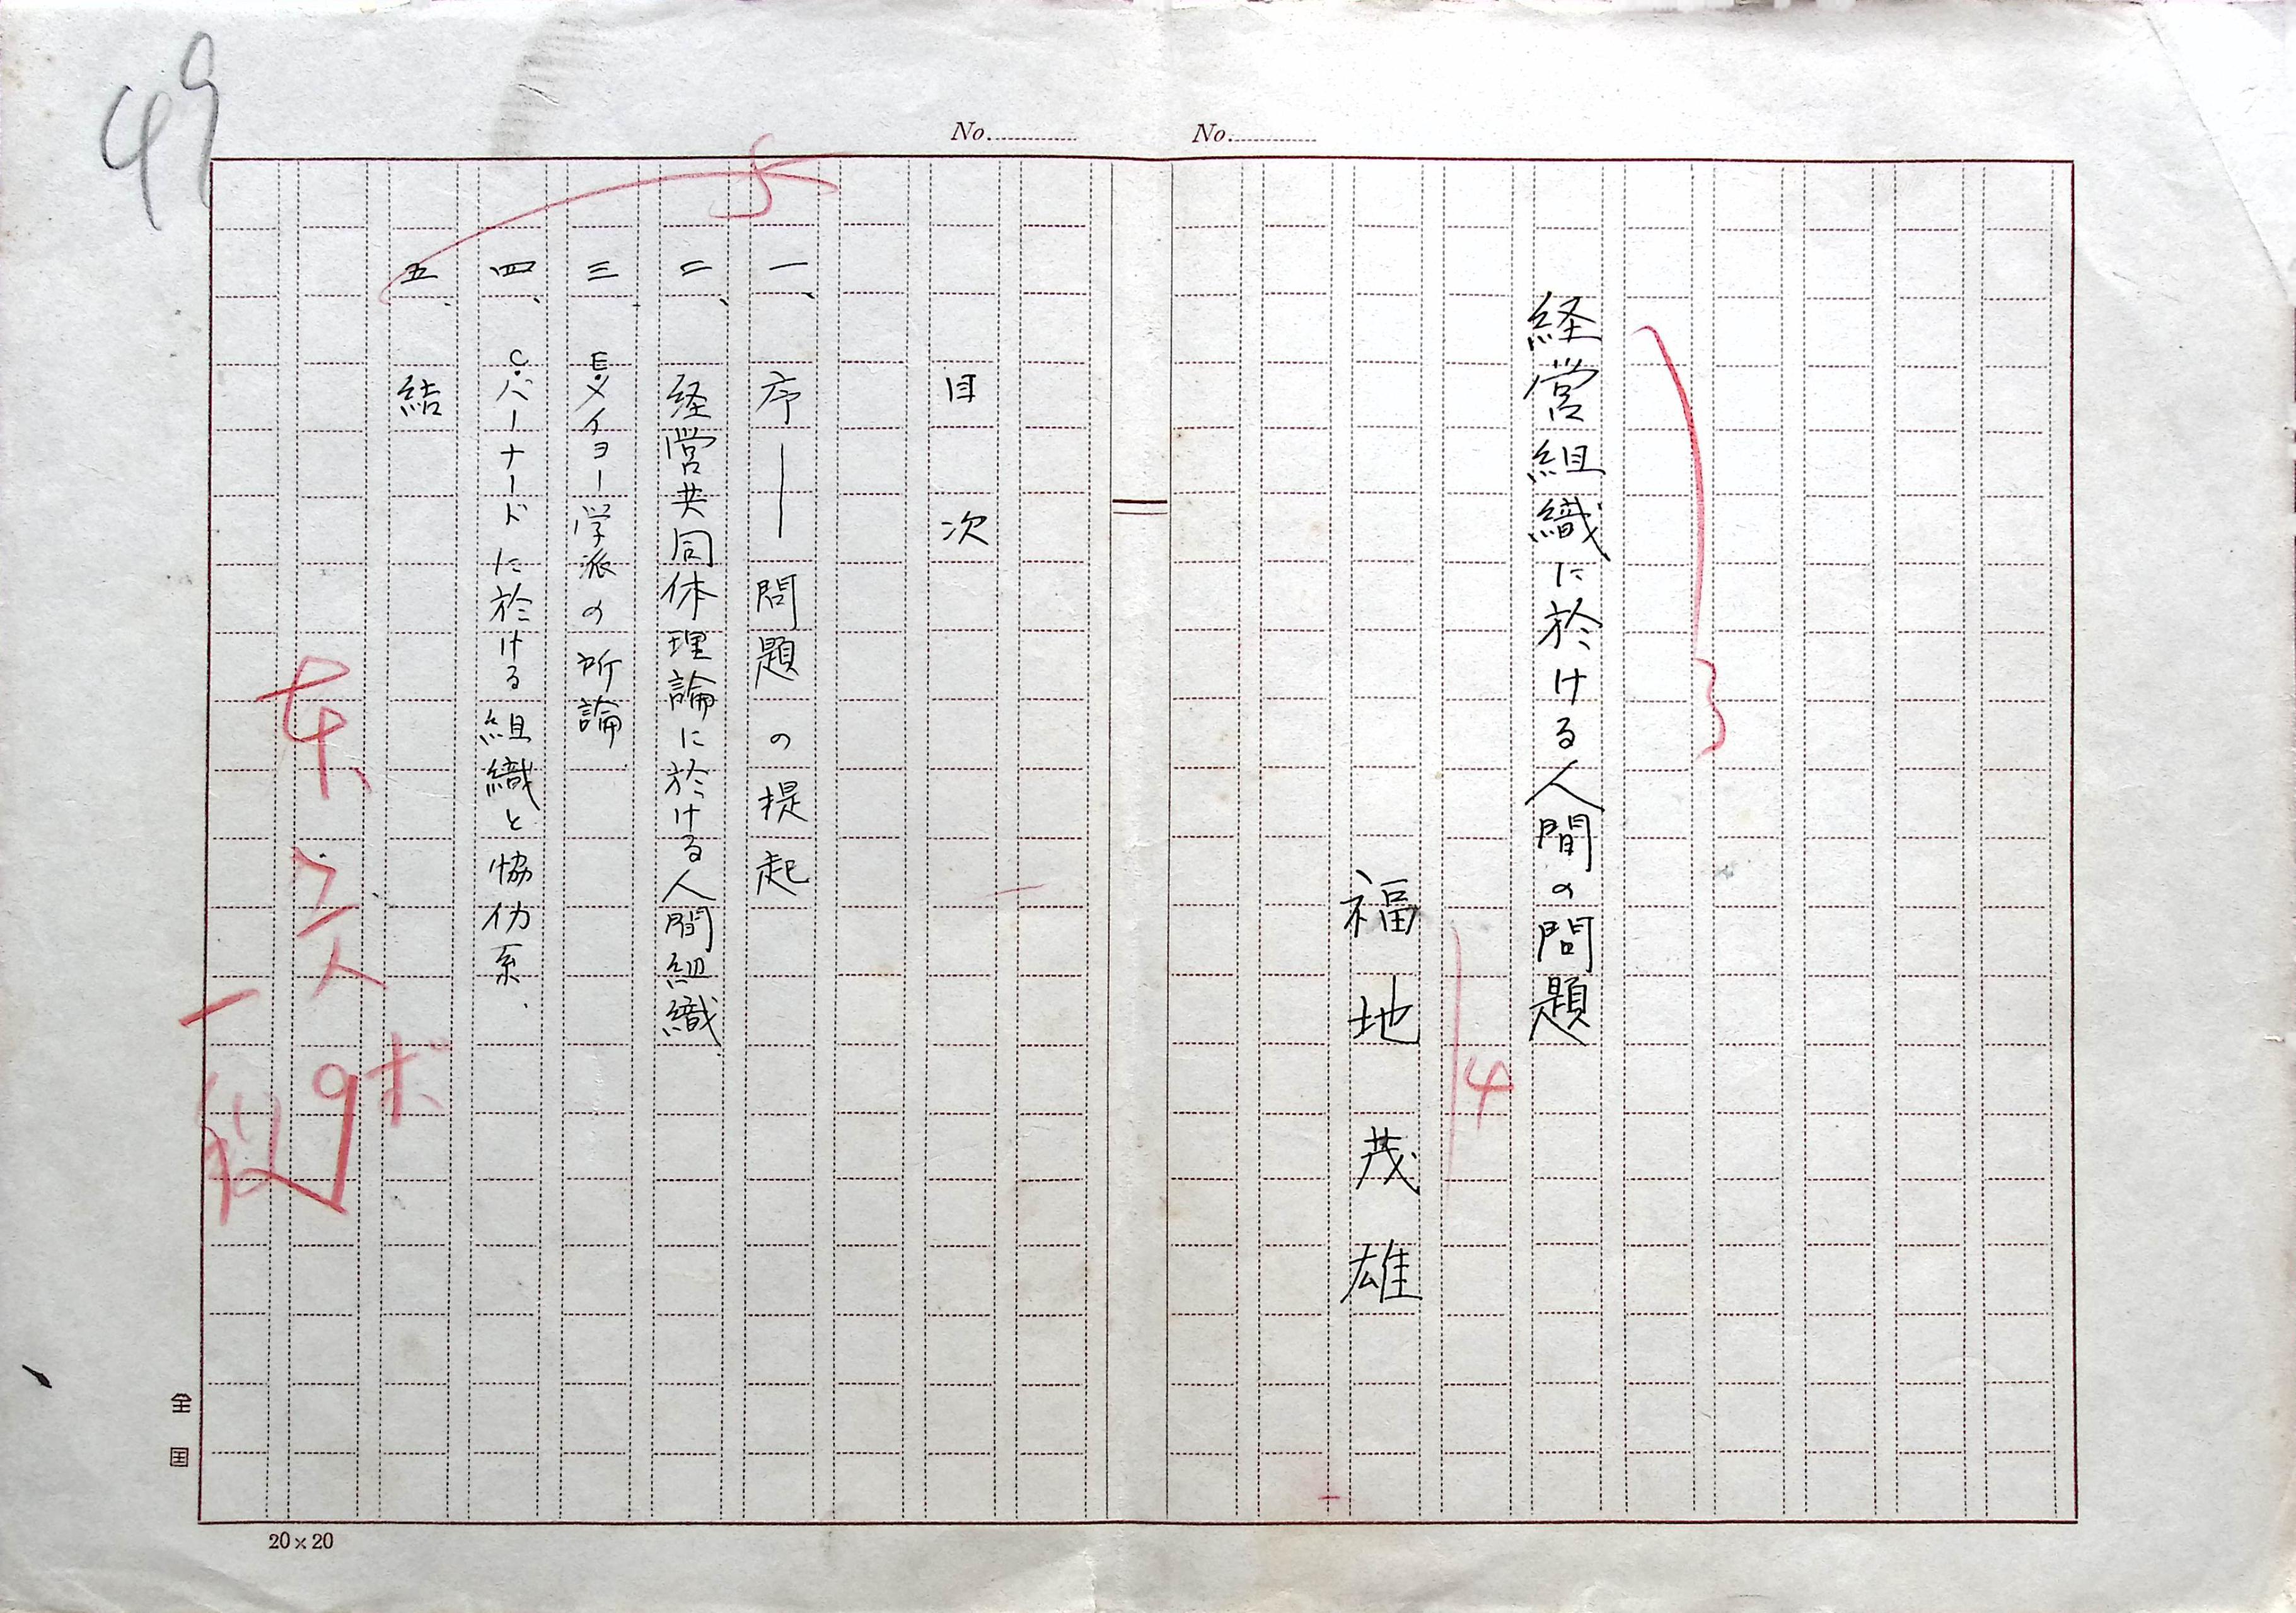 No.
経営組織に於ける人間の問題
3
福地茂雄
14
No.
目次
5
一、序――問題の提起
二、経営共同体理論に於ける人間組織
三、E.メイヨー学派の所論
四、C.バーナードに於ける組織と協仂系.
五、結
本文
9ポ
一段
49
全国
20×20